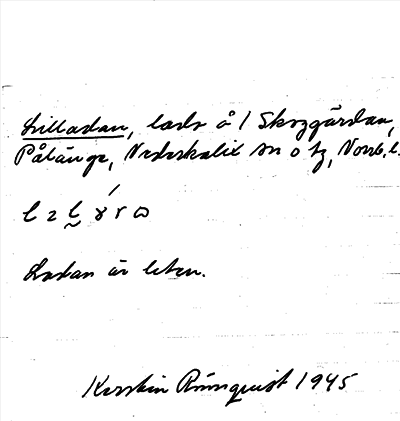 Lilladan, lada å 1 Skozgärdan,
Pålänge, Nederkalix sn o tg, Norrb. l.
Ladan är liten.
Kerstin Rönnquist 1945